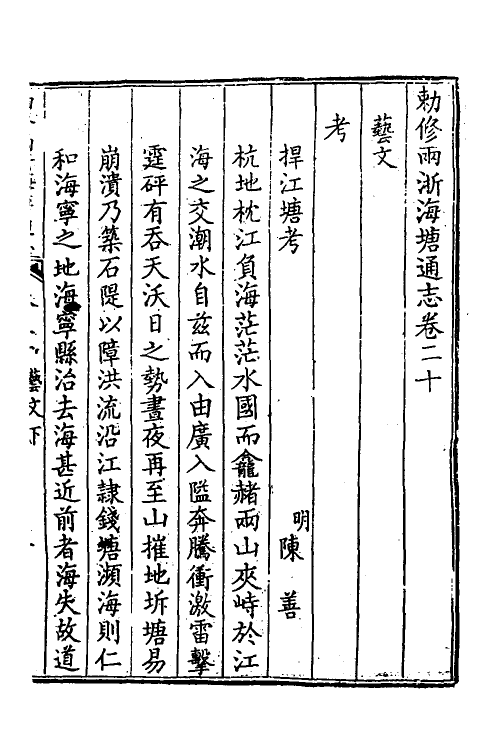 勅修兩浙海塘通志卷二十
藝文
考
捍江塘考
明陳善
杭地枕江負海茫茫水國而龕赭兩山夾峙於江
海之交潮水自兹而入由廣入隘奔騰衝激雷擊
霆砰有吞天沃日之勢晝夜再至山摧地坼塘易
崩潰乃築石隄以障洪流沿江隷錢塘瀕海則仁
和海寧之地海寧縣治去海甚近前者海失故道
藝文下